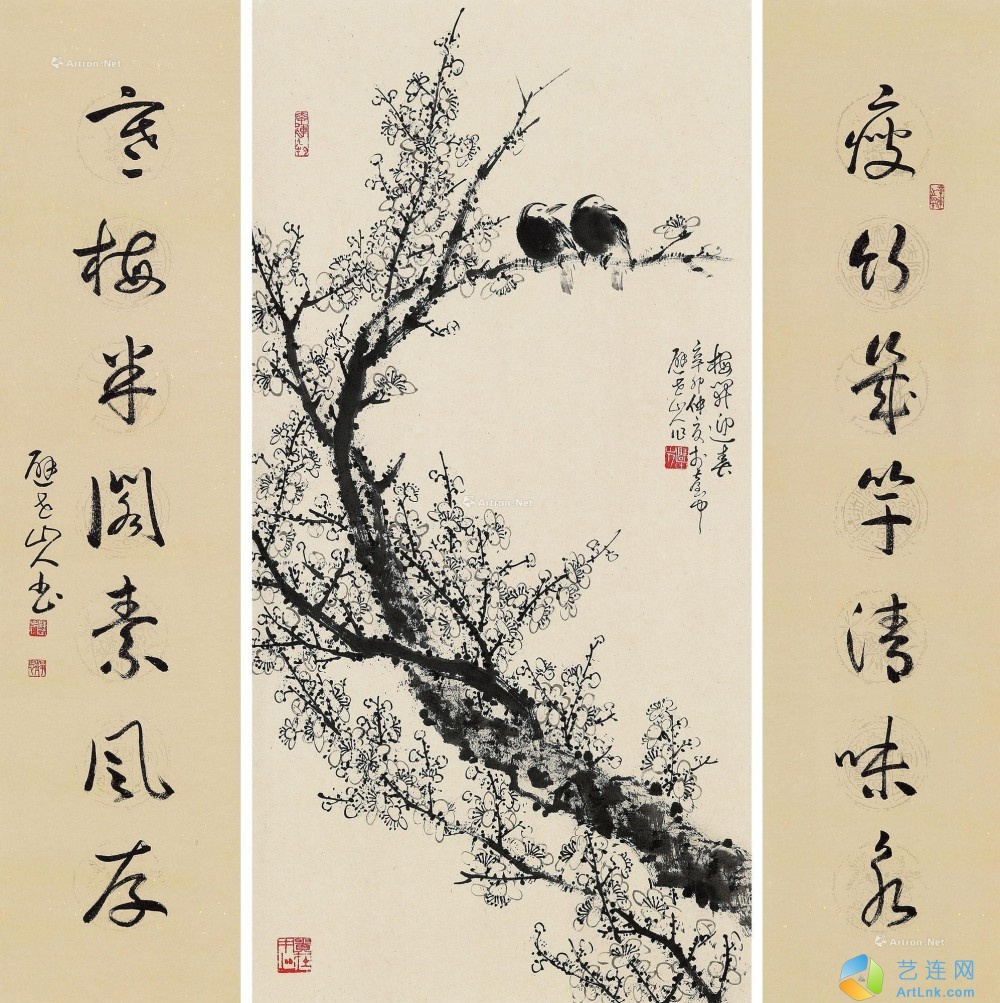 瘦竹幾竿清味永
梅開迎春
辛卯仲夏於
老山人作
寒梅半閣素風存
老山人書
Artron.Net
Artron.Net
Artron.Net
艺连网
ArtLnk.com